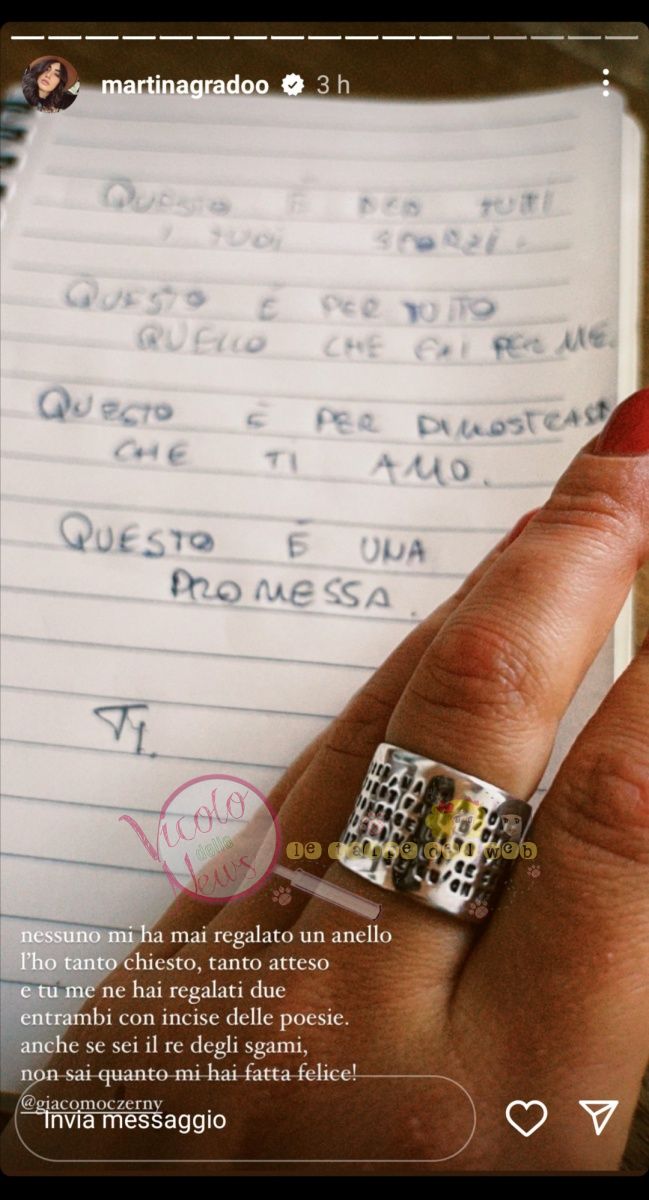 martinagradoo 3 h
QUESTO È PER TUTTI
I TUOI SFORZI.
QUESTO È PER TUTTO
QUELLO CHE FAI PER ME.
QUESTO È PER DIMOSTRARTI
CHE TI AMO.
QUESTO È UNA
PROMESSA.
Vicolo
delle
News
le talpe del web
nessuno mi ha mai regalato un anello
l'ho tanto chiesto, tanto atteso
e tu me ne hai regalati due
entrambi con incise delle poesie.
anche se sei il re degli sgami,
non sai quanto mi hai fatta felice!
@giacomoczerny
Invia messaggio